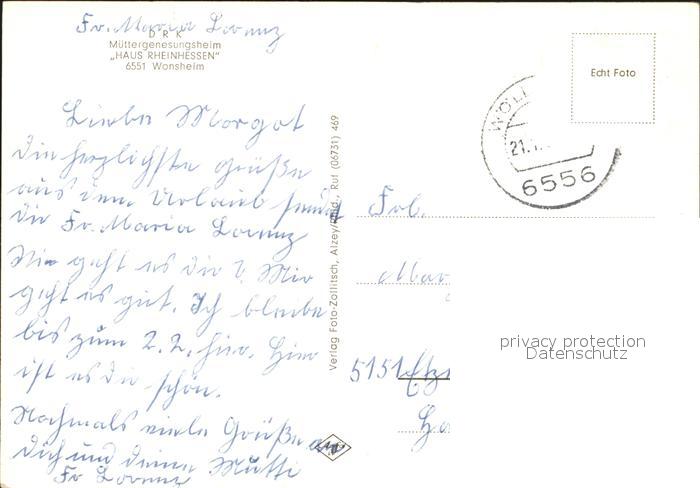 Fr. Maria Lorenz
D R K
Müttergenesungsheim
„HAUS RHEINHESSEN"
6551 Wonsheim
Liebe Margot
die herzlichste Grüße
aus dem Urlaub sendet
dir Fr. Maria Lorenz
Wie geht es dir? Mir
geht es gut. Ich bleibe
bis zum 2. 2. hier. Hier
ist es die schön.
Nochmals viele Grüße an
dich und deine Mutti
Fr Lorenz
Verlag Foto-Zollitsch, Alzey/Rhld., Ruf (06731) 469
Echt Foto
WÖLL
21.
6556
Frl.
Mar
5151
privacy protection
Datenschutz